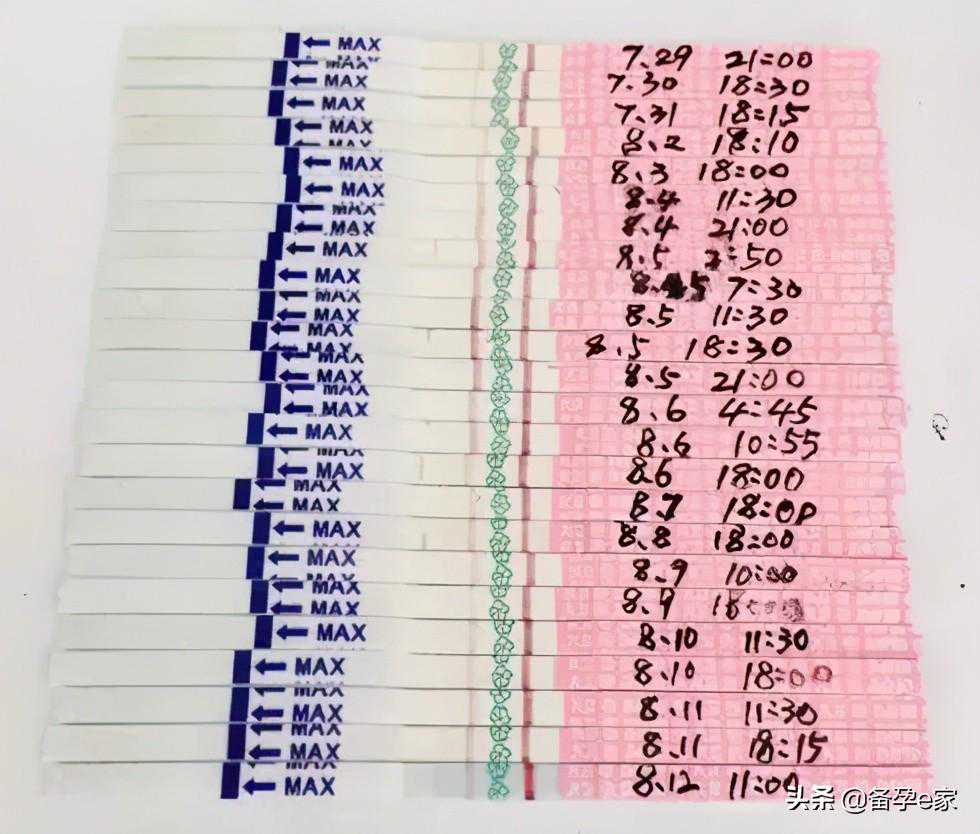 MAX 7.29 21:00
MAX 7.30 18:30
MAX 7.31 18:15
MAX 8.2 18:10
MAX 8.3 18:00
MAX 8.4 11:30
MAX 8.4 21:00
MAX 8.5 2:50
MAX 8.5 7:30
MAX 8.5 11:30
MAX 8.5 18:30
MAX 8.5 21:00
MAX 8.6 4:45
MAX 8.6 10:55
MAX 8.6 18:00
MAX 8.7 18:00
MAX 8.8 18:00
MAX 8.9 10:00
MAX 8.9
MAX 8.10 11:30
MAX 8.10 18:00
MAX 8.11 11:30
MAX 8.11 18:15
MAX 8.12 11:00
头条 @备孕e家